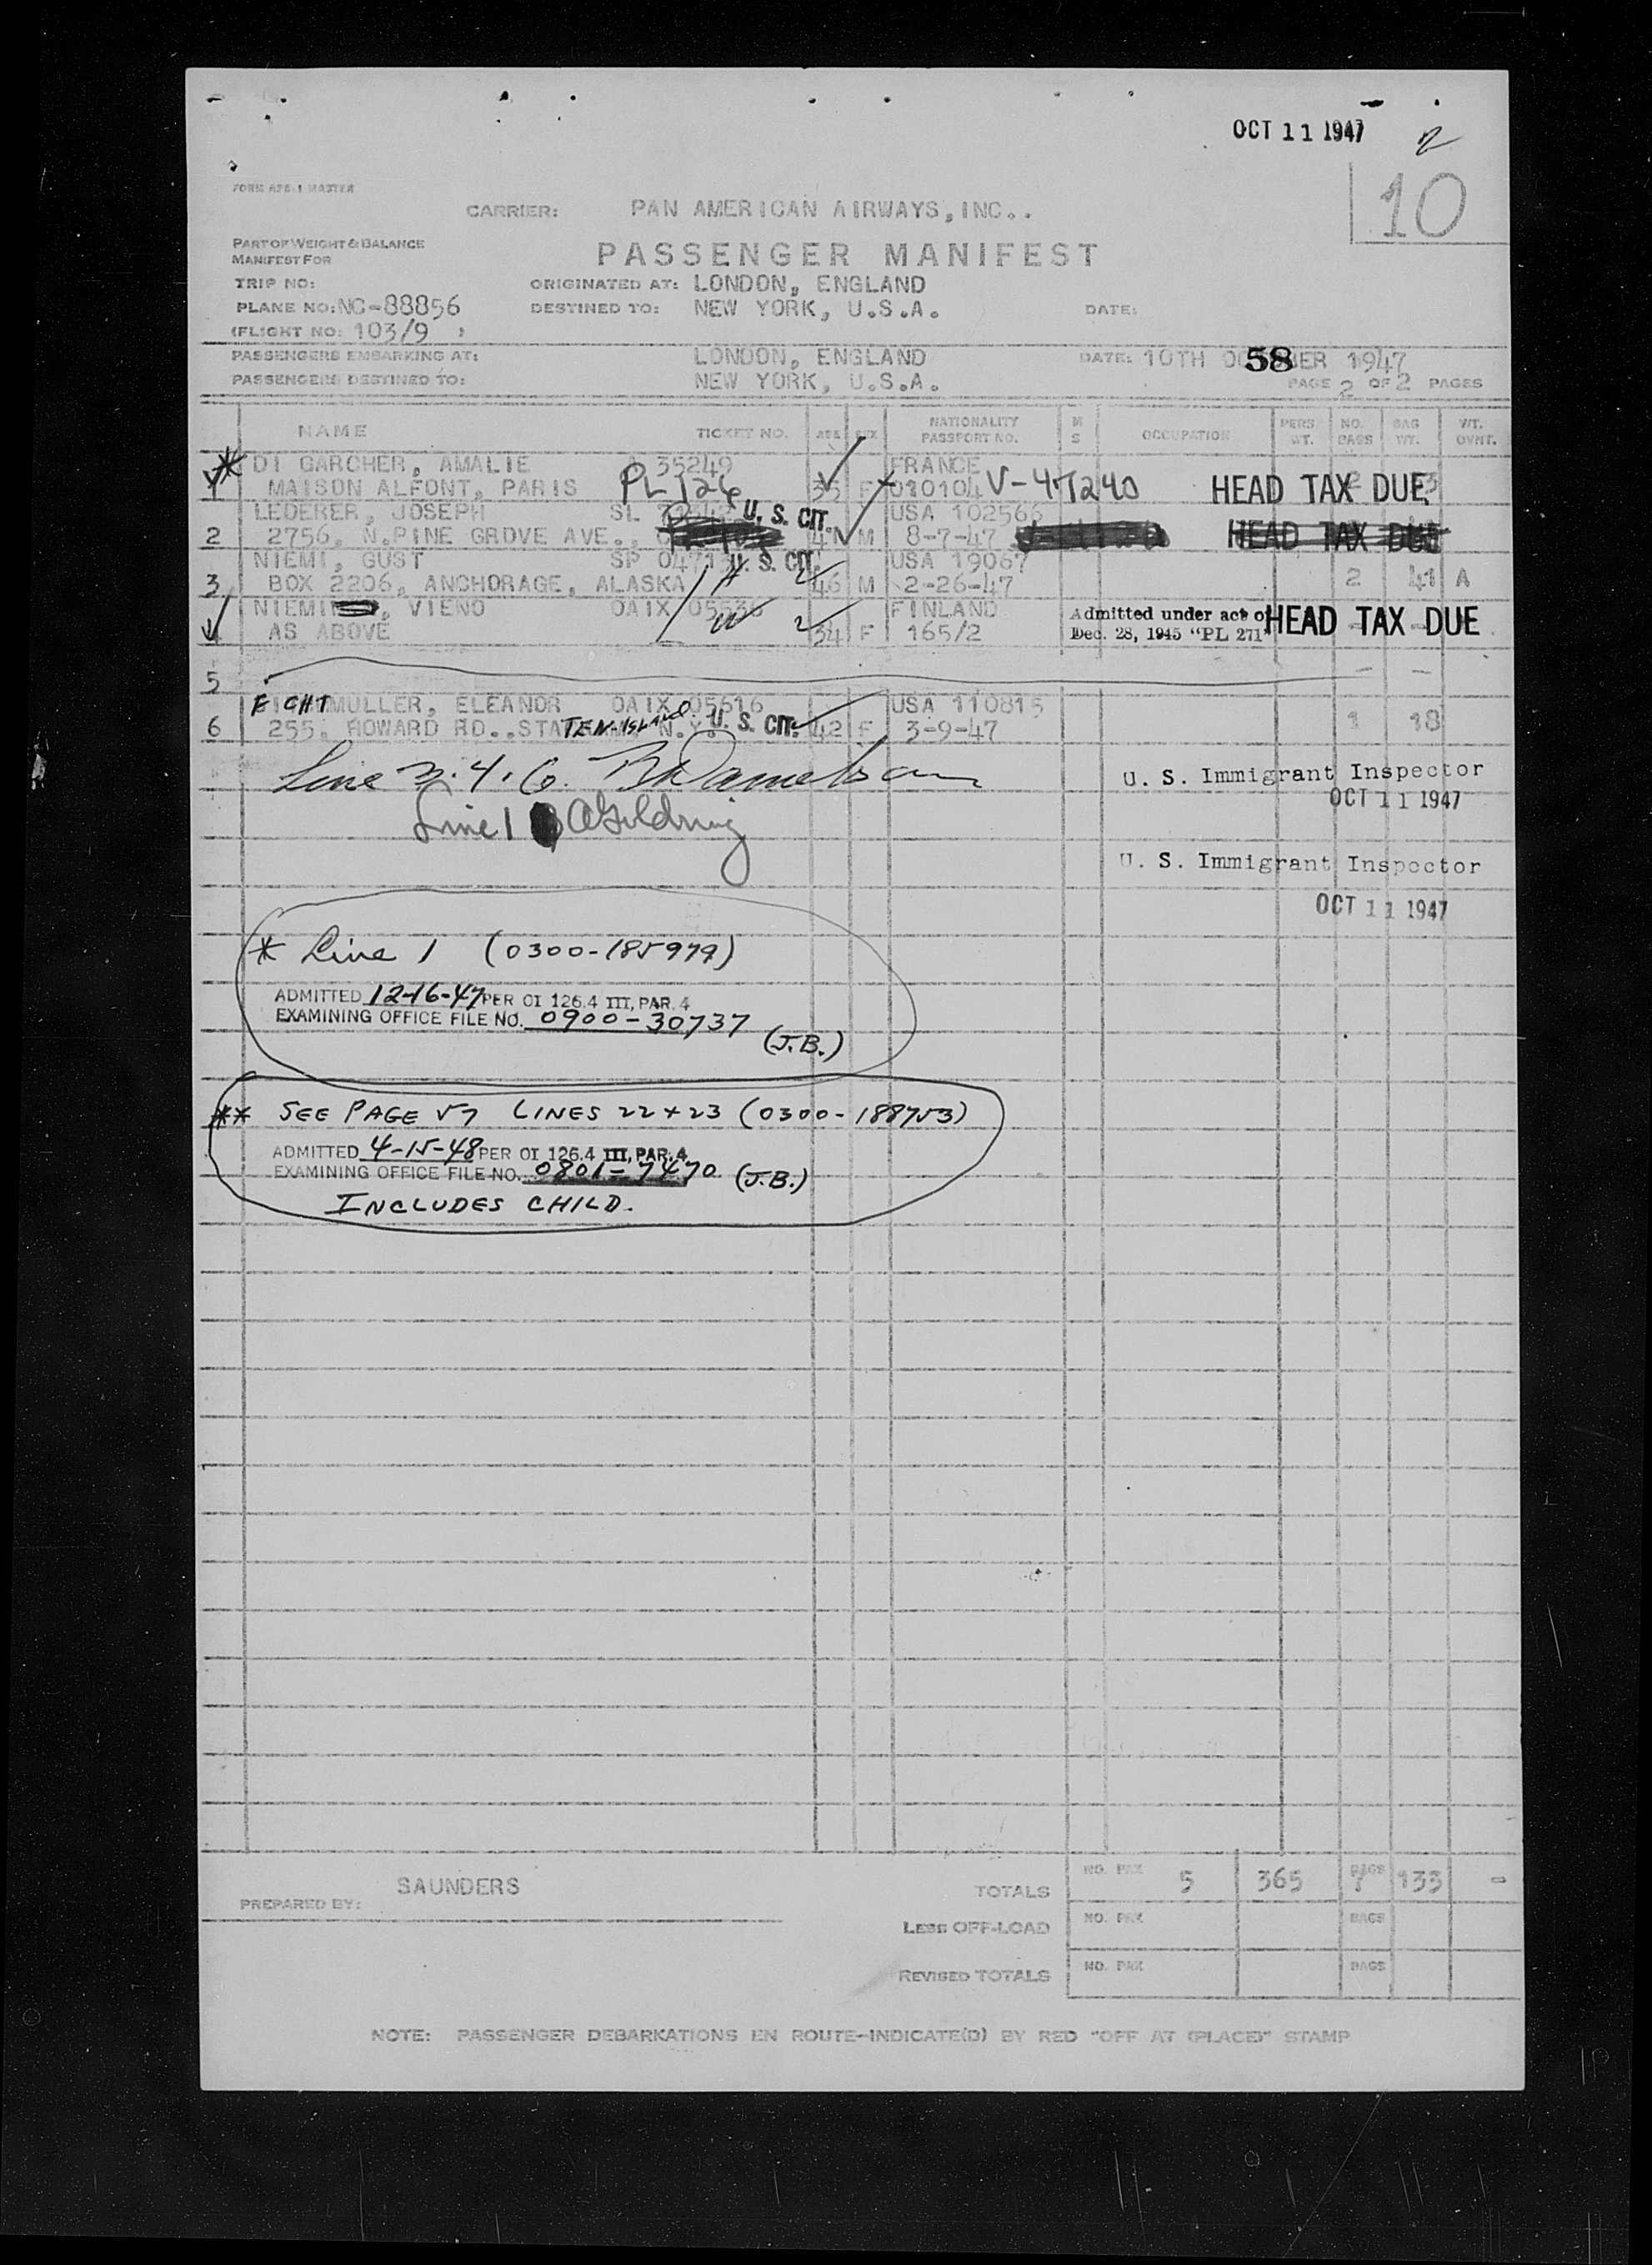 OCT 11 1947 2
10
FORM APB-1 MASTER
CARRIER: PAN AMERICAN AIRWAYS, INC..
PART OF WEIGHT & BALANCE
MANIFEST FOR
PASSENGER MANIFEST
TRIP NO: ORIGINATED AT: LONDON, ENGLAND
PLANE NO: NC-88856 DESTINED TO: NEW YORK, U.S.A. DATE:
(FLIGHT NO: 103/9 )
PASSENGERS EMBARKING AT: LONDON, ENGLAND DATE: 10TH OCTOBER 1947
58
PASSENGERS DESTINED TO: NEW YORK, U.S.A. PAGE 2 OF 2 PAGES
NAME TICKET NO. AGE SEX NATIONALITY PASSPORT NO. M S OCCUPATION PERS. WT. NO. BAGS BAG WT. WT. OVNT.
* DI GARCHER, AMALIE 35249 FRANCE
1 MAISON ALFONT, PARIS PL 126 35 F 080104 V-471240 HEAD TAX DUE
LEDERER, JOSEPH SL U. S. CIT. USA 102566
2 2756, N.PINE GROVE AVE., M 8-7-47 HEAD TAX DUE
NIEMI, GUST SP U. S. CIT. USA 19067
3 BOX 2206, ANCHORAGE, ALASKA 46 M 2-26-47 2 41 A
NIEMI, VIENO OAIX 05536 FINLAND Admitted under act of HEAD TAX DUE
4 AS ABOVE 34 F 165/2 Dec. 28, 1945 "PL 271"
5 — —
EICHTMULLER, ELEANOR OAIX 05616 USA 110815
6 255. HOWARD RD..STATEN ISLAND N.Y. U. S. CIT. 42 F 3-9-47 1 18
Line 3.4.6. U. S. Immigrant Inspector
OCT 11 1947
Line 1 AGoldring
U. S. Immigrant Inspector
OCT 11 1947
* Line 1 (0300-185979)
ADMITTED 12-16-47 PER OI 126.4 III, PAR. 4
EXAMINING OFFICE FILE NO. 0900-30737
(J.B.)
** SEE PAGE 57 LINES 22+23 (0300-188753)
ADMITTED 4-15-48 PER OI 126.4 III, PAR. 4
EXAMINING OFFICE FILE NO. 0801-7470 (J.B.)
INCLUDES CHILD.
PREPARED BY: SAUNDERS
TOTALS NO. PAX 5 365 BAGS 7 133 -
LESS OFF-LOAD NO. PAX BAGS
REVISED TOTALS NO. PAX BAGS
NOTE: PASSENGER DEBARKATIONS EN ROUTE-INDICATE(D) BY RED "OFF AT (PLACE)" STAMP